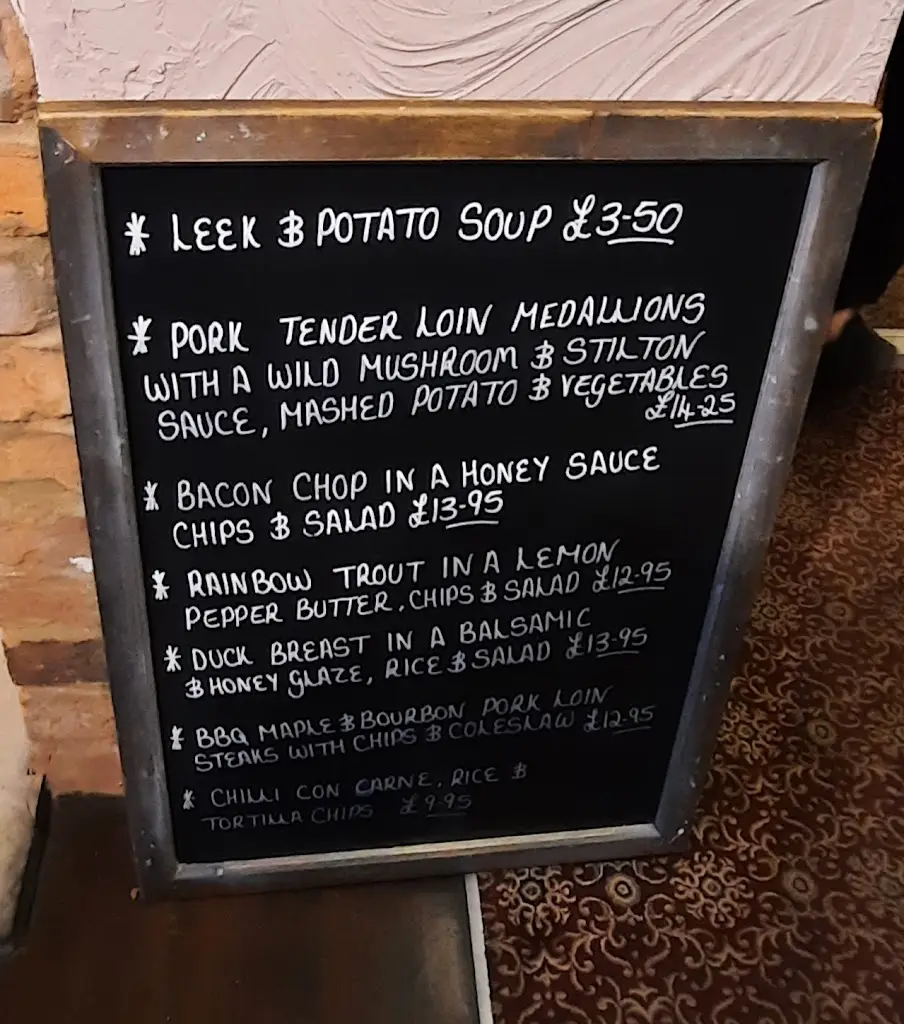 * LEEK & POTATO SOUP £3-50
* PORK TENDER LOIN MEDALLIONS
WITH A WILD MUSHROOM & STILTON
SAUCE, MASHED POTATO & VEGETABLES
£14-25
* BACON CHOP IN A HONEY SAUCE
CHIPS & SALAD £13-95
* RAINBOW TROUT IN A LEMON
PEPPER BUTTER, CHIPS & SALAD £12-95
* DUCK BREAST IN A BALSAMIC
& HONEY GLAZE, RICE & SALAD £13-95
* BBQ MAPLE & BOURBON PORK LOIN
STEAKS WITH CHIPS & COLESLAW £12-95
* CHILLI CON CARNE, RICE &
TORTILLA CHIPS £9-95